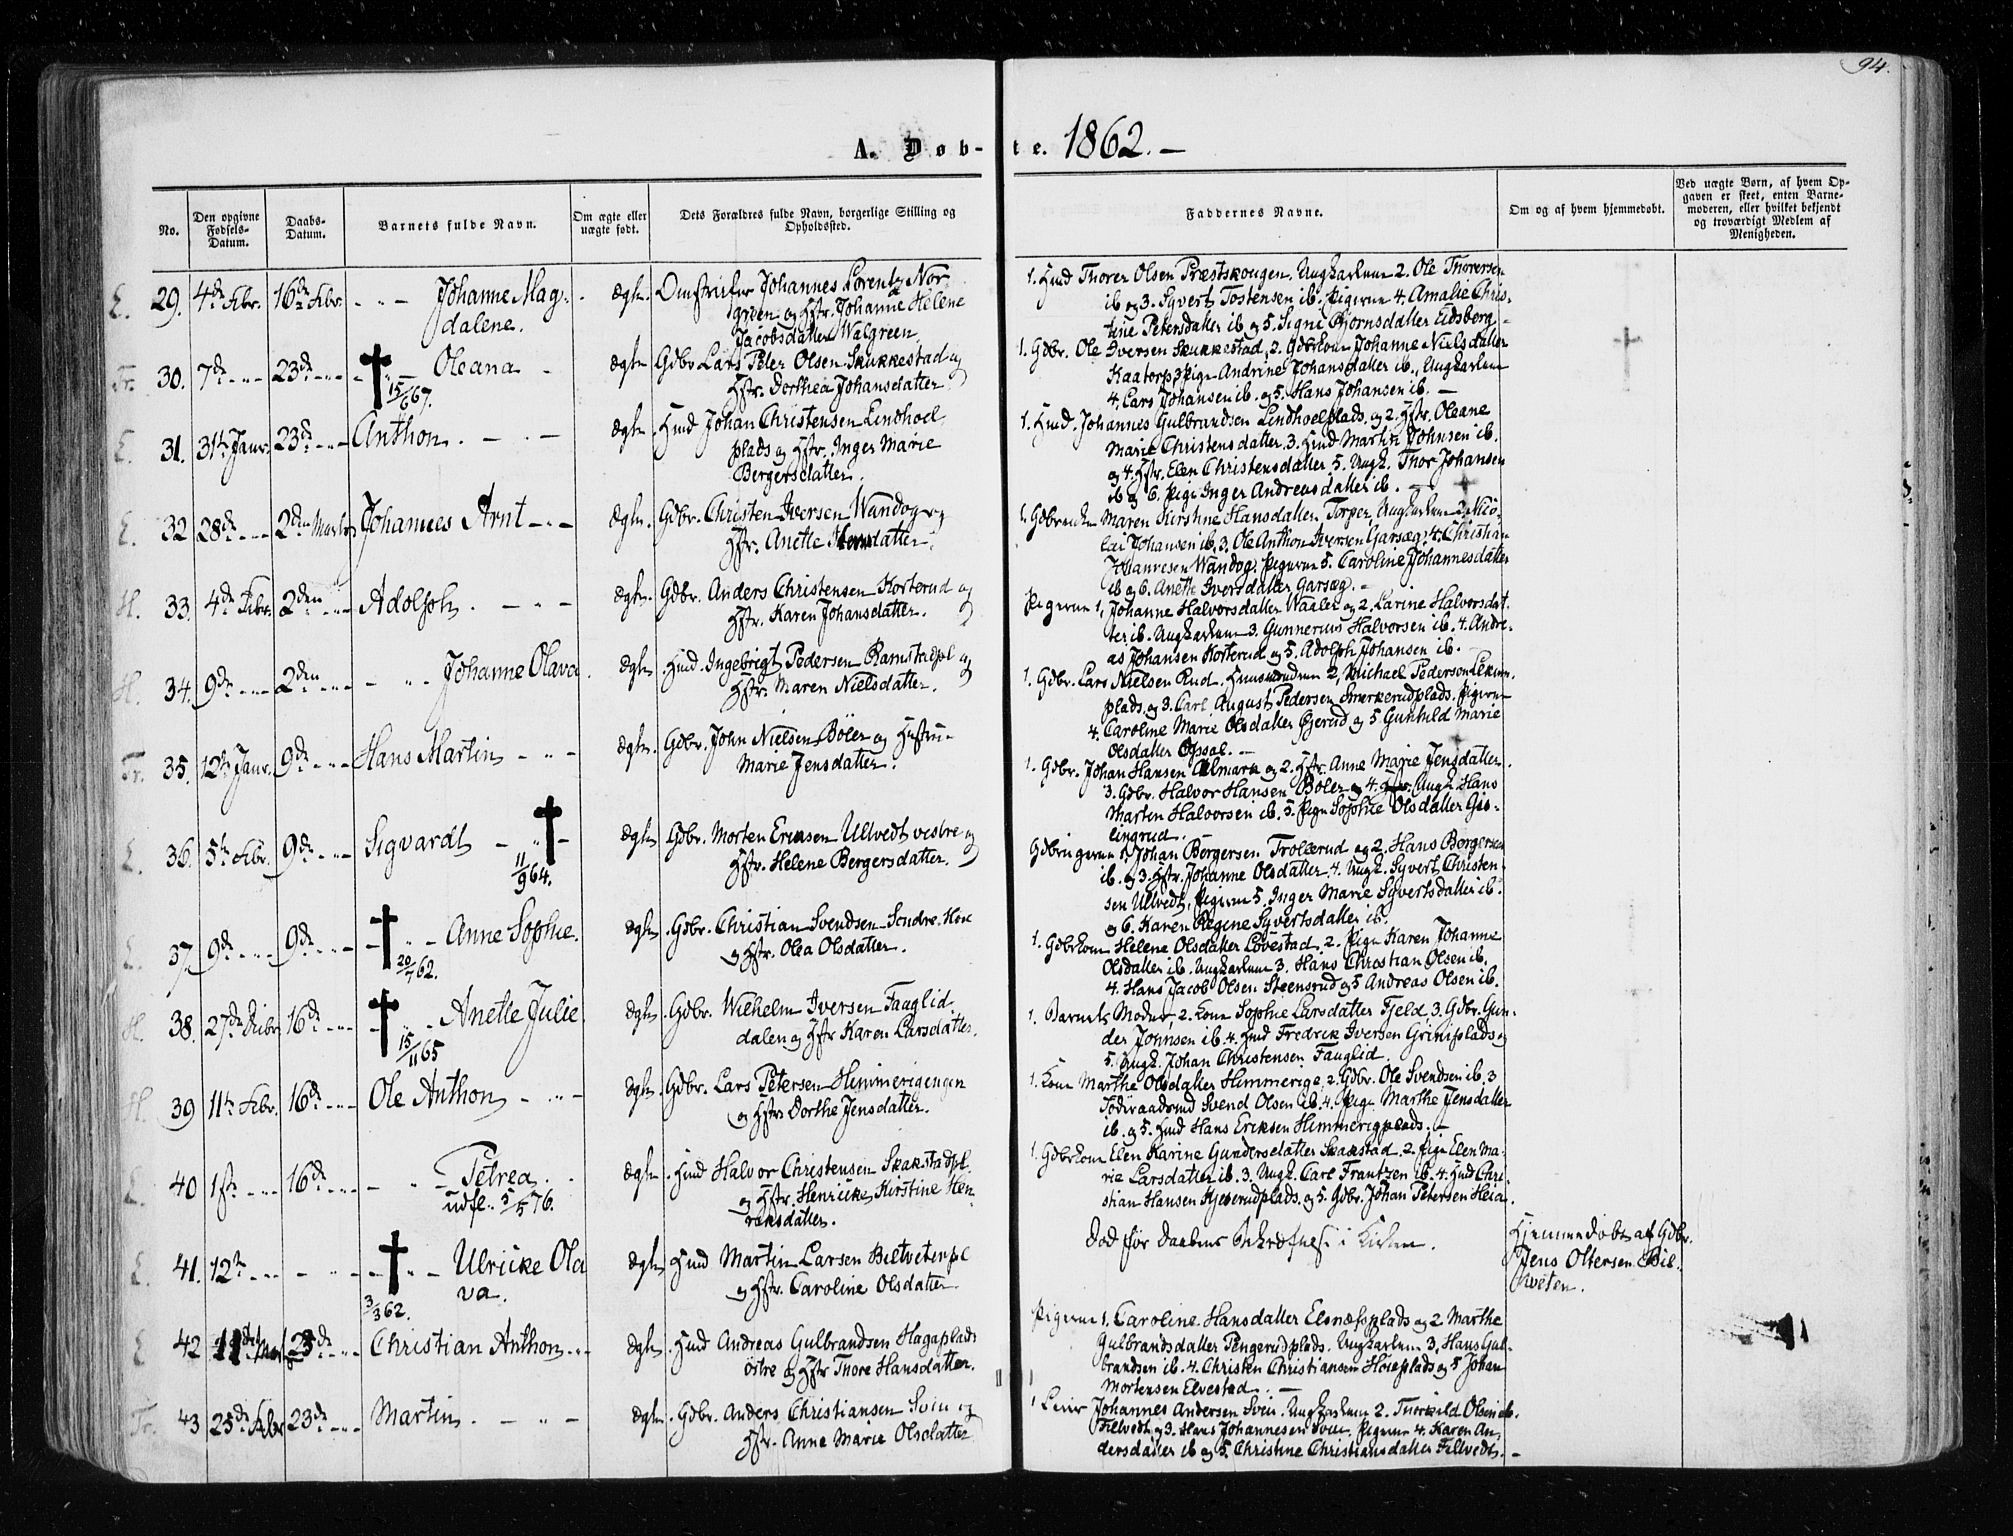 94.
A. Døbte. 1862. —
No.
Den opgivne Fødsels-Datum.
Daabs-Datum.
Barnets fulde Navn.
Om ægte eller uægte født.
Dets Forældres fulde Navn, borgerlige Stilling og Opholdssted.
Faddernes Navne.
Om og af hvem hjemmedøbt.
Ved uægte Børn, af hvem Opgaven er skeet, enten Barnemoderen, eller hvilket bekjendt og troværdigt Medlem af Menigheden.
E. 29. 4de Febr. 16de Febr. Johanne Mag-
dalene.
ægte. Johannes Lorentz Nor-
green og Hstr. Johanne Helene
Jacobsdatter Walgreen.
1. Hmd Thorer Olsen Præstskougen. Ungkarlene 2. Ole Thorersen
ib og 3. Syvert Tostensen ib. Pigerne 4. Amalie Chris-
tine Petersdatter ib og 5. Signe Bjørnsdatter Eidsberg
Fr. 30. 7de 23de Oleana
15/6 67.
ægte Gdbr Lars Peter Olsen Skukkestad og
Hstr. Dorthea Johansdatter
1. Gdbr. Ole Iversen Skukkestad, 2. Gdbrkone Johanne Nielsdatter
Kaatorp, Pige Andrine Johansdatter ib., Ungkarlene
4. Lars Johansen ib. og 5. Hans Johansen ib. —
E. 31. 31te Janr. 23de Anthon.
ægte. Hmd Johan Christensen Lindhoel
plads og Hstr. Inger Marie
Bergersdatter.
1. Hmd. Johannes Gulbrandsen Lindhoelplads og 2. Hstr. Oleane
Marie Christensdatter. 3. Hmd Martin Johnsen ib.
og 4. Hstr. Elen Christensdatter. 5. Ungk. Thor Johansen
ib og 6. Pige Inger Andreasdatter ib. —
E. 32 28de 2den Marts Johannes Arnt
ægte. Gdbr. Christen Iversen Wandog og
Hstr. Anette
1. Maren Kirstine Hansdatter Torper, Ungkarlene 2. Nico-
lai Johansen ib. 3. Ole Anthon Iversen Garsæg. 4. Christian
Johannesen Wandog. Pigerne 5. Caroline Johannesdatter
ib og 6. Anette Iversdatter Garsæg. —
H. 33. 4de Febr. 2den Adolph.
ægte. Gdbr. Anders Christensen Korterud og
Hstr. Karen Johansdatter.
Pigerne 1. Johanne Halvorsdatter Waaler og 2. Larine Halvorsdat-
ter ib. Ungkarlene 3. Gunnerius Halvorsen ib. 4. Andre-
as Johansen Korterud og 5. Adolph Johansen ib.
H. 34. 9de 2den Johanne Olava.
ægte Hmd. Ingebrigt Pedersen Ramstadpl og
Hstr. Maren Nielsdatter.
1. Gdbr. Lars Nielsen Rud. Huusmændene 2. Michael Pedersen
plads og 3. Carl August Pedersen Smærkerudplads. Pigerne
4. Caroline Marie Olsdatter Gjerud og 5 Gunhild Marie
Olsdatter Opsal. —
Fr. 35. 12te Janr. 9de Hans Martin
ægte. Gdbr. John Nielsen Bøler og Hustru
Marie Jensdatter.
1. Gdbr. Johan Hansen Almark og 2. Hstr. Anne Marie Jensdatter.
3. Gdbr. Halvor Hansen Bøler og 4. Ungk Hans
Martin Halvorsen ib. 5. Pige Sophie Olsdatter Gis-
lingrud.
E. 36. 5te Febr. 9de Sigvardt
11/9 64.
ægte Gdbr. Morten Eriksen Ullvedt vestre og
Hstr. Helene Bergersdatter.
Gdbrugerne 1. Johan Bergersen Trollerud og 2. Hans Bergersen
ib. og 3. Hstr. Johanne Olsdatter. 4. Ungk. Syvert Christen-
sen Ullvedt, Pigerne 5. Inger Marie Syvertsdatter ib.
og 6. Karen Regine Syvertsdatter ib.
E. 37. 9de 9de Anne Sophie.
20/7 62.
ægte. Gdbr. Christian Svendsen Søndre
og Hstr. Olea Olsdatter.
1. Gdbrkone Helene Olsdatter Løvestad, 2. Pige Karen Johanne
Olsdatter ib. Ungkarlene 3. Hans Christian Olsen ib.
4. Hans Jacob Olsen Steensrud og 5 Andreas Olsen ib.
H. 38. 27de 16de Anette Julie
15/11 65
ægte. Gdbr. Wilhelm Iversen Fauglid
dalen og Hstr Karen Larsdatter.
1. Barnets Moder, 2. Kone Sophie Larsdatter Fjeld, 3. Gdbr. Gun-
der Johnsen ib 4. Hmd Fredrik Iversen Griniplads og
5. Ungk. Johan Christensen Fauglid.
H. 39 11te Febr. 16de Ole Anthon
ægte. Gdbr. Lars Petersen Himmerigengen
og Hstr Dorthe Jensdatter.
1. Kone Marthe Olsdatter Himmerige, 2. Gdbr. Ole Svendsen ib. 3
Svend Olsen ib. 4. Pige Marthe Jensdatter
ib. og 5. Hmd Hans Eriksen Himmerigplads. —
E. 40 1ste 16de Petrea
udfl. 5/5 76.
ægte. Hmd Halvor Christensen Skakstadpl.
og Hstr. Henrikke Kirstine Hen-
riksdatter.
1. Gdbrkone Elen Karine Gundersdatter Skakstad. 2. Pige Elen Ma-
rie Larsdatter ib. 3. Ungk. Carl Frantzen ib. 4. Hmd Chri-
stian Hansen Kjeserudplads. og 5. Gdbr. Johan Petersen Heia.
E. 41. 12te Ulrikke Ola
va.
3/3 62.
ægte Hmd Martin Larsen Biltvetenpl
og Hstr. Caroline Olsdatter
Død før Daabens i Kirken.
Hjemmedøbt af Gdbr.
Jens Oltersen Bil-
tveten.
E 42 23de Christian Anthon
ægte. Hmd Andreas Gulbrandsen Hagaplads
østre og Hstr Thore Hansdatter.
Pigerne 1. Caroline Hansdatter Elsnæsplads og 2 Marthe
Gulbrandsdatter Pengerudplads. Ungkarlene 3. Hans Gul-
brandsen ib. 4. Christen Christiansen Høieplads og 5 Johan
Mortensen Elvestad. —
Fr. 43 25de Febr 23de Martin
ægte. Gdbr. Anders Christiansen Svin og
Hstr. Anne Marie Olsdatter
1 Johannes Andersen Svin. Ungkarlene 2. Thorkild Olsen
Filtvedt og 3. Hans Johannesen Svin. Pigerne 4. Karen An-
dersdatter ib og 5. Christine Christiansdatter Filtvedt. —